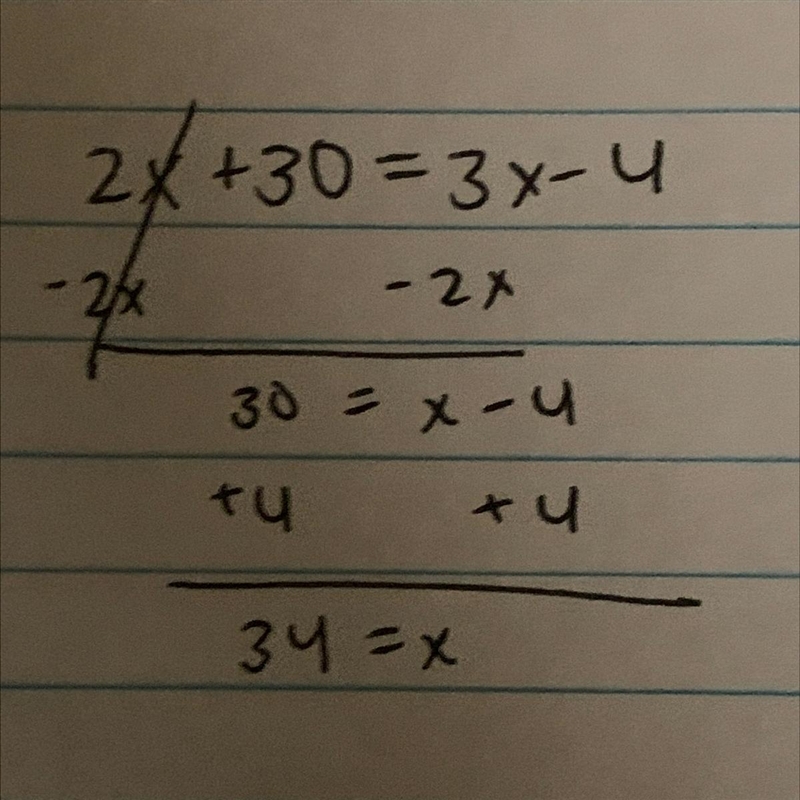 2x +30 = 3x - 4
-2x -2x
30 = x - 4
+4 +4
34 = x